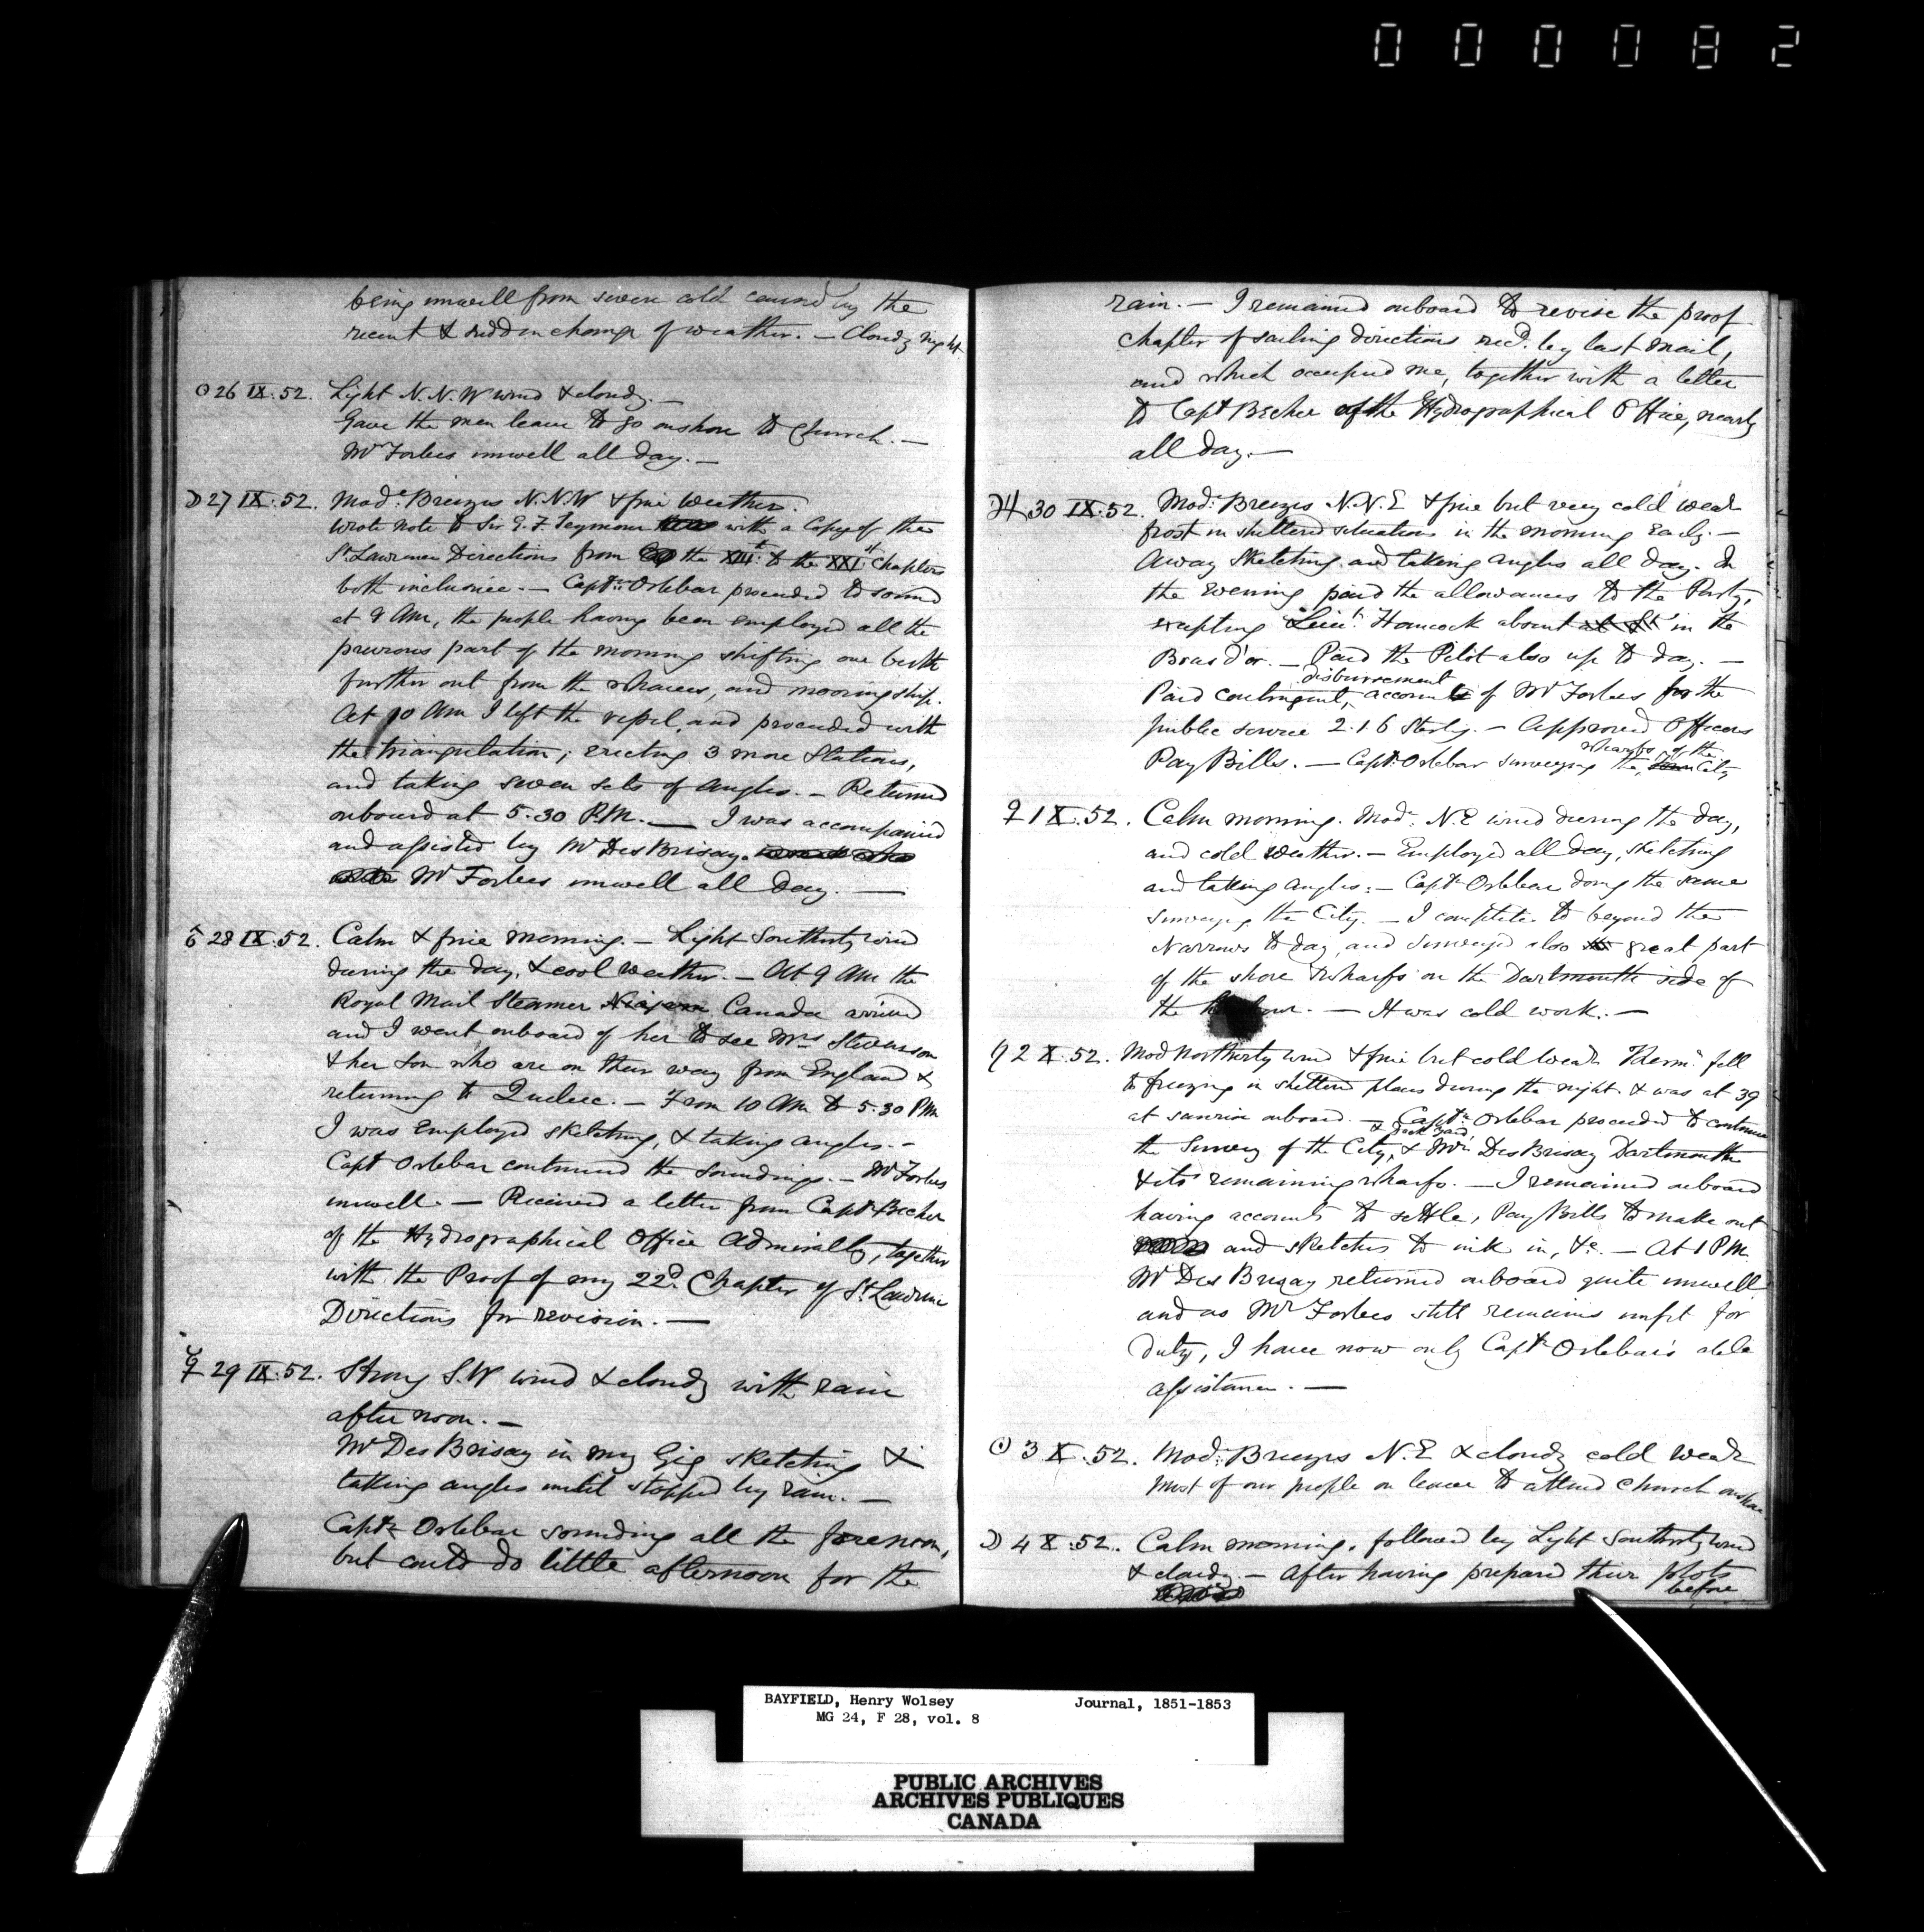 0 0 0 0 8 2
being unwell from severe cold caused by the
recent & sudden change of weather. — Cloudy night.
☉ 26 IX. 52. Light N.N.W wind & cloudy. —
Gave the men leave to go onshore to Church. —
Mr Forbes unwell all day. —
☽ 27 IX. 52. Modᵉ Breezes N.N.W & fine Weather.
Wrote note to Sir G. F. Seymour with a Copy of the
St Lawrence Directions from the XIIIᵗʰ to the XXIˢᵗ Chapters
both inclusive. — Captⁿ Orlebar proceeded to sound
at 9 AM, the people having been employed all the
previous part of the morning shifting our berth
further out from the wharves, and mooring ship.
At 10 AM I left the vessel, and proceeded with
the triangulation; erecting 3 more Stations,
and taking seven sets of angles. — Returned
onboard at 5.30 P.M. — I was accompanied
and assisted by Mr DesBrisay.
Mr Forbes unwell all day. —
♂ 28 IX. 52. Calm & fine morning. — Light Southerly wind
during the day, & cool weather. — At 9 AM the
Royal Mail Steamer Niagara Canada arrived
and I went onboard of her to see Mrs Stevenson
& her son who are on their way from England &
returning to Quebec. — From 10 AM to 5.30 PM
I was Employed sketching, & taking angles. —
Capt Orlebar continued the soundings. — Mr Forbes
unwell. — Received a letter from Capt Becher
of the Hydrographical Office Admiralty, together
with the Proof of my 22ᵈ Chapter of St Lawrence
Directions for revision. —
☿ 29 IX. 52. Strong S.W wind & cloudy with rain
after noon. —
Mr Des Brisay in my Gig sketching &
taking angles until stopped by rain. —
Captⁿ Orlebar sounding all the forenoon,
but could do little afternoon for the
rain. — I remained onboard to revise the proof
Chapter of sailing directions recᵈ. by last mail,
and which occupied me, together with a letter
to Capt Becher of the Hydrographical Office, nearly
all day. —
♃ 30 IX. 52. Modᵉ Breezes N.N.E & fine but very cold weaʳ
frost in sheltered situations in the morning Early. —
Away Sketching and taking angles all day. In
the Evening paid the allowances to the Party,
excepting Lieuᵗ. Hancock absent at St in the
Bras d'or. — Paid the Pilot also up to day. —
disbursement
Paid contingent, account of Mr Forbes for the
public service 2.1.6 Sterlg. — Approved Officers
wharfs of the
Pay Bills. — Capt. Orlebar surveying the Town City
♀ 1 X. 52. Calm morning. Modᵉ N.E wind during the day,
and cold weather. — Employed all day, sketching
and taking angles. — Captⁿ Orlebar doing the same
surveying the City. — I completed to beyond the
Narrows to day, and surveyed also great part
of the shore & wharfs on the Dartmouth side of
the harbour. — It was cold work. —
♄ 2 X. 52. Mod Northerly wind & fine but cold Weaʳ Thermʳ fell
to freezing in sheltered places during the night. & was at 39
at sunrise onboard. — Captⁿ Orlebar proceeded to continue
& Dock Yard
the Survey of the City, & Mr DesBrisay Dartmouth
& its remaining wharfs. — I remained onboard
having accounts to settle, Pay Bills to make out
and sketches to ink in, &c. — At 1 PM
Mr Des Brisay returned onboard quite unwell
and as Mr Forbes still remains unfit for
Duty, I have now only Captⁿ Orlebar's able
assistance. —
☉ 3 X. 52. Modᵉ Breezes N.E & cloudy cold weaʳ
Most of our people on leave to attend Church onshore.
☽ 4 X. 52. Calm morning, followed by Light Southerly wind
& cloudy. — After having prepared their plots
before
BAYFIELD, Henry Wolsey Journal, 1851-1853
MG 24, F 28, vol. 8
PUBLIC ARCHIVES
ARCHIVES PUBLIQUES
CANADA